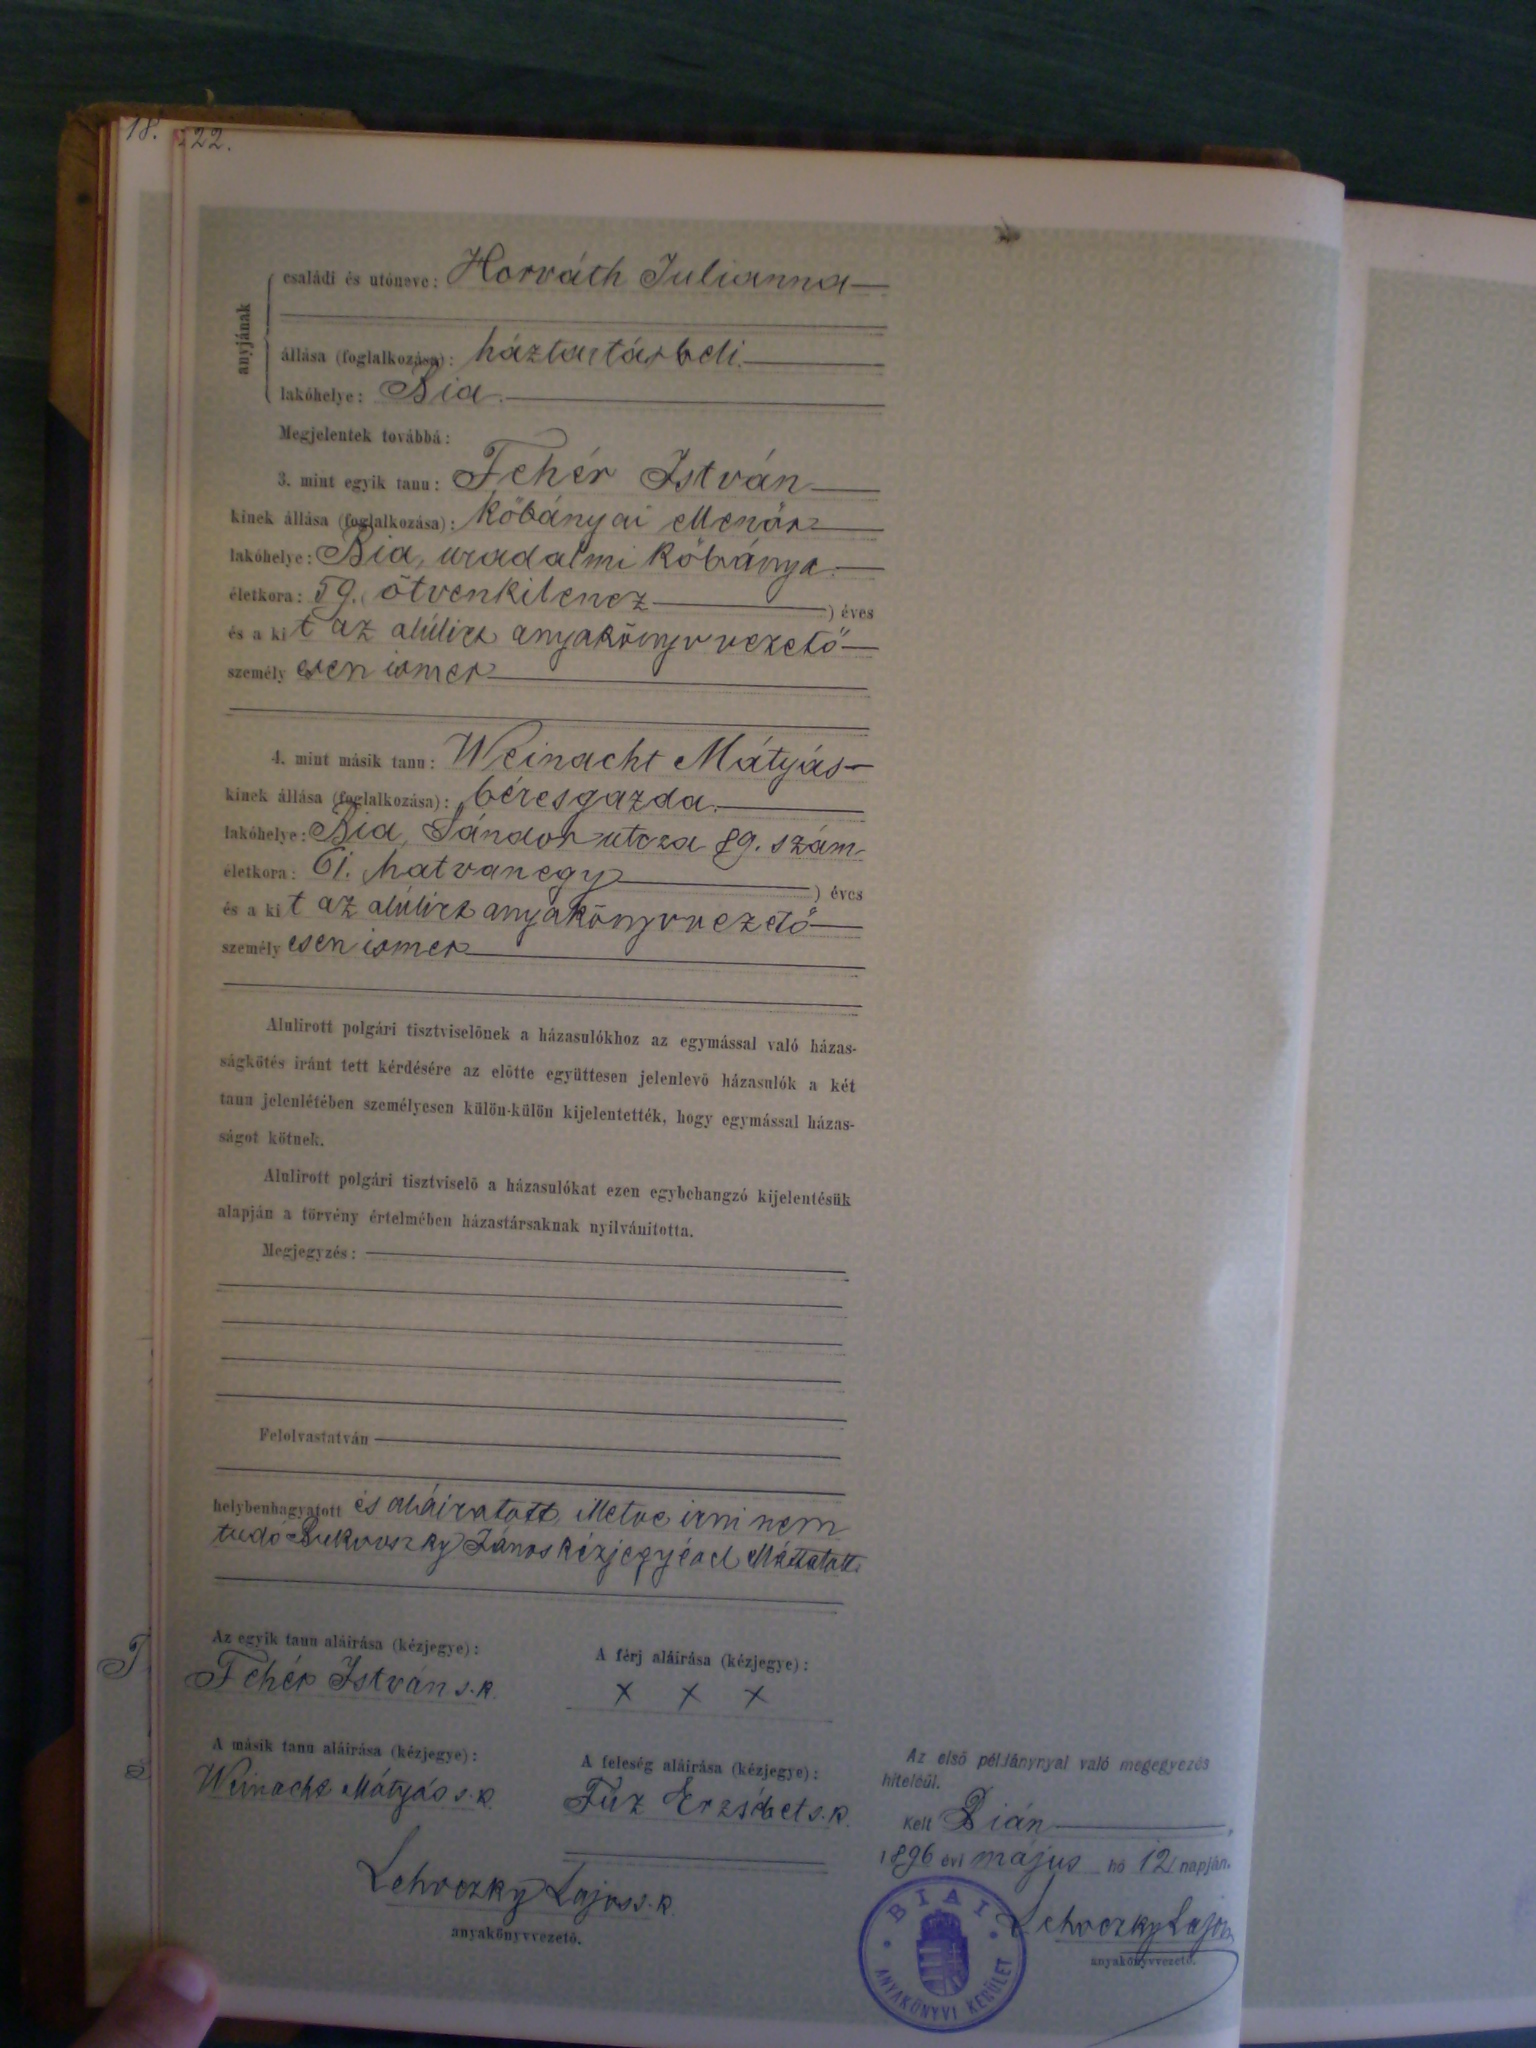 18. 22.
anyjának
családi és utóneve: Horváth Julianna
állása (foglalkozása): háztartásbeli.
lakóhelye: Bia.
Megjelentek továbbá:
3. mint egyik tanu: Fehér István
kinek állása (foglalkozása): kőbányai ellenőr
lakóhelye: Bia, uradalmi kőbánya.
életkora: 59. ötvenkilencz ) éves
és a ki t az alúlirt anyakönyvvezető
személy esen ismer
4. mint másik tanu: Weinacht Mátyás
kinek állása (foglalkozása): béresgazda.
lakóhelye: Bia, Sándor utcza 89. szám
életkora: 61. hatvanegy ) éves
és a ki t az alúlirt anyakönyvvezető
személy esen ismer
Alulirott polgári tisztviselőnek a házasulókhoz az egymással való házas-
ságkötés iránt tett kérdésére az előtte együttesen jelenlevő házasulók a két
tanu jelenlétében személyesen külön-külön kijelentették, hogy egymással házas-
ságot kötnek.
Alulirott polgári tisztviselő a házasulókat ezen egybehangzó kijelentésük
alapján a törvény értelmében házastársaknak nyilvánitotta.
Megjegyzés:
Felolvastatván
helybenhagyatott és aláiratott, illetve irni nem
tudó János kézjegyével elláttatott
Az egyik tanu aláirása (kézjegye):
Fehér István s. k.
A férj aláirása (kézjegye):
x x x
A másik tanu aláirása (kézjegye):
Weinacht Mátyás s. k.
A feleség aláirása (kézjegye):
Füz Erzsébet s. k.
Lehoczky Lajos s. k.
anyakönyvvezető.
Az első példánynyal való megegyezés
hiteléül.
Kelt Bián
1896 évi május hó 12 napján.
Lehoczky Lajos
anyakönyvvezető.
BIAI
ANYAKÖNYVI KERÜLET